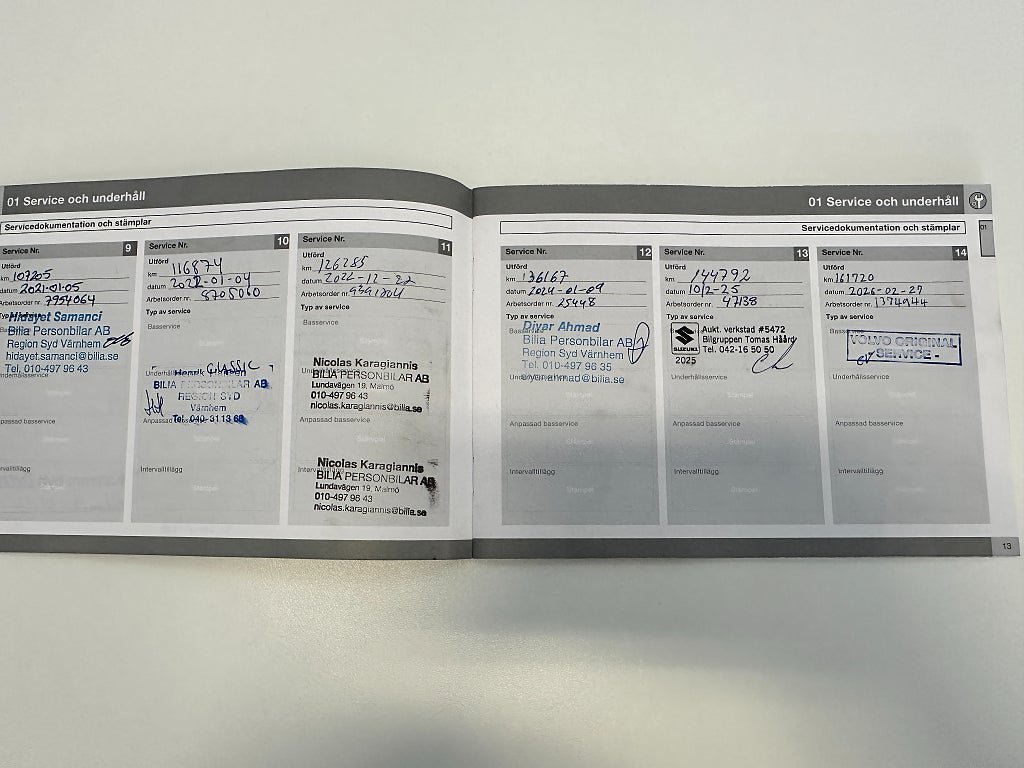 01 Service och underhåll
Servicedokumentation och stämplar
Service Nr. 9
Utförd
km 107205
datum 2021-01-05
Arbetsorder nr. 7954064
Typ av service
Hidayet Samanci
Bilia Personbilar AB
Region Syd Värnhem
hidayet.samanci@bilia.se
Tel. 010-497 96 43
Underhållsservice
Anpassad basservice
Intervalltillägg
Service Nr. 10
Utförd
km 116874
datum 2022-01-04
Arbetsorder nr. 8705060
Typ av service
Basservice
CLASSIC
Henrik
BILIA PERSONBILAR AB
REGION SYD
Värnhem
Tel. 040-31 13 68
Anpassad basservice
Stämpel
Intervalltillägg
Stämpel
Service Nr. 11
Utförd
km 126285
datum 2022-12-22
Arbetsorder nr. 9391204
Typ av service
Basservice
Nicolas Karagiannis
BILIA PERSONBILAR AB
Lundavägen 19, Malmö
010-497 96 43
nicolas.karagiannis@bilia.se
Anpassad basservice
Nicolas Karagiannis
BILIA PERSONBILAR AB
Lundavägen 19, Malmö
010-497 96 43
nicolas.karagiannis@bilia.se
01 Service och underhåll
01
Servicedokumentation och stämplar
Service Nr. 12
Utförd
km 136167
datum 2024-01-09
Arbetsorder nr. 25448
Typ av service
Diyar Ahmad
Bilia Personbilar AB
Region Syd Värnhem
Tel. 010-497 96 35
diyar.ahmad@bilia.se
Anpassad basservice
Stämpel
Intervalltillägg
Stämpel
Service Nr. 13
Utförd
km 144792
datum 10/2-25
Arbetsorder nr. 47138
Typ av service
SUZUKI
2025
Aukt. verkstad #5472
Bilgruppen Tomas Håård
Tel. 042-16 50 50
Underhållsservice
Anpassad basservice
Stämpel
Intervalltillägg
Stämpel
Service Nr. 14
Utförd
km 161720
datum 2026-02-27
Arbetsorder nr. 1374944
Typ av service
VOLVO ORIGINAL
- SERVICE -
Underhållsservice
Anpassad basservice
Stämpel
Intervalltillägg
Stämpel
13